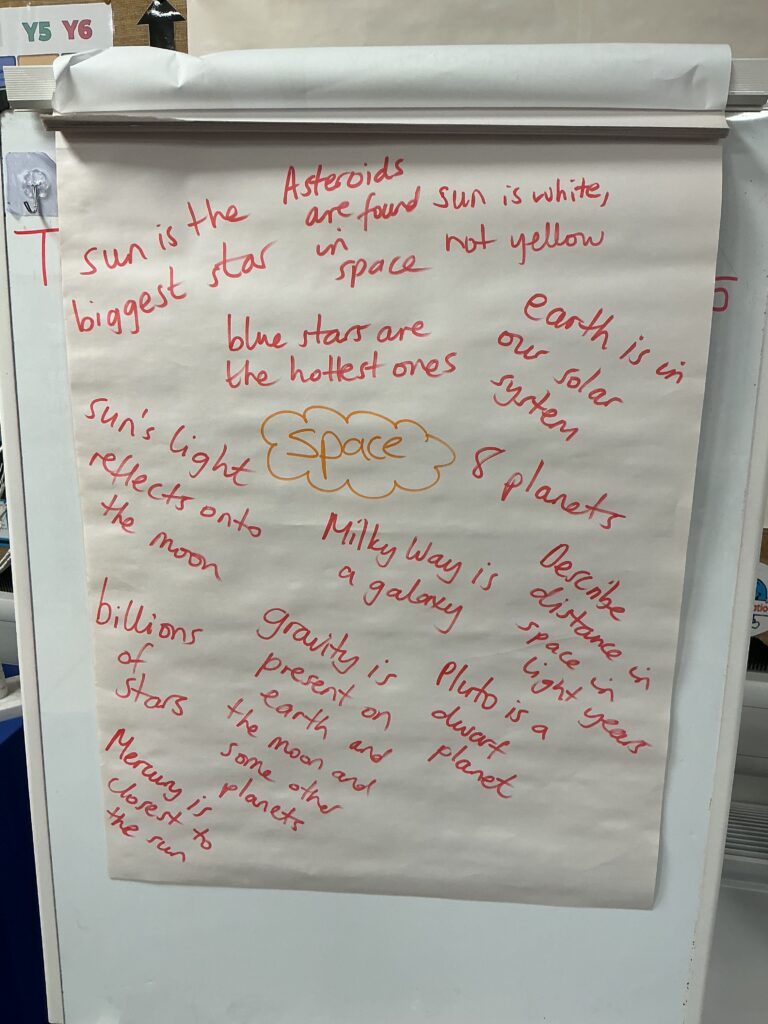 Y5 Y6
Asteroids
are found
in
space
sun is the
biggest star
sun is white,
not yellow
blue stars are
the hottest ones
earth is in
our solar
system
space
8 planets
sun's light
reflects onto
the moon
Milky Way is
a galaxy
Describe
distance in
space in
light years
billions
of
stars
gravity is
present on
earth and
the moon and
some other
planets
Pluto is a
dwarf
planet
Mercury is
closest to
the sun
T